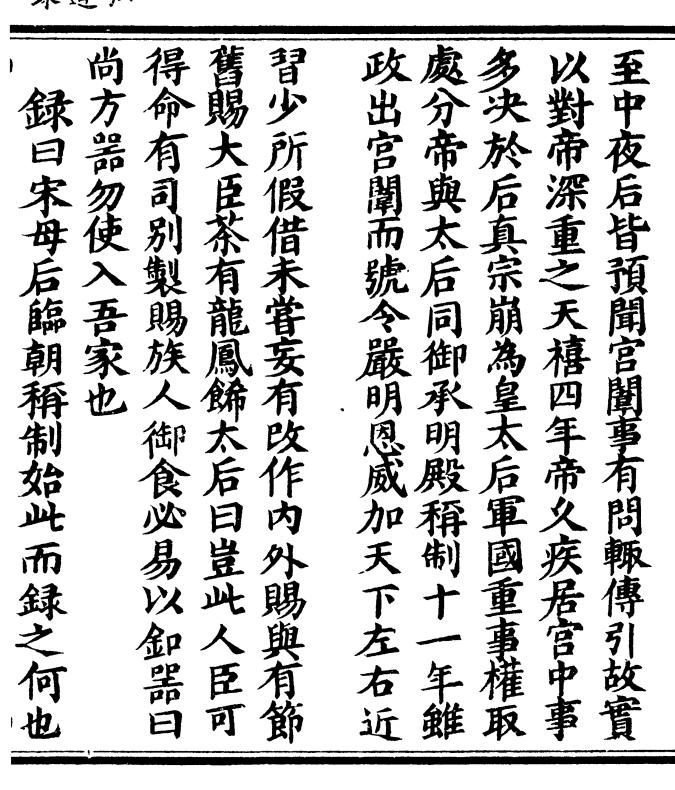 至中夜后皆預聞宫闈事有問輙傳引故實
以對帝深重之天禧四年帝乆疾居宫中事
多决於后真宗崩為皇太后軍國重事權取
處分帝與太后同御承明殿稱制十一年雖
政出宫闈而號令嚴明恩威加天下左右近
習少所假借未嘗妄有改作内外賜與有節
舊賜大臣茶有龍鳳餙太后曰豈此人臣可
得命有司别製賜族人御食必易以釦器曰
尚方器勿使入吾家也
録曰宋母后臨朝稱制始此而録之何也